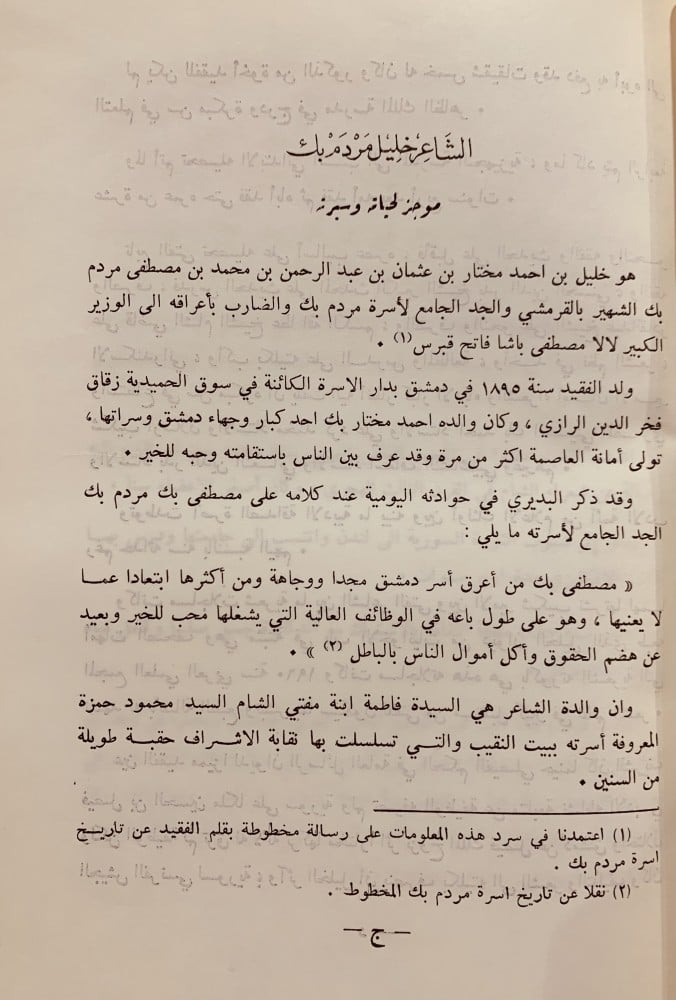 الشاعر خليل مردم بك
موجز لحياته وسيرته
هو خليل بن احمد مختار بن عثمان بن عبد الرحمن بن محمد بن مصطفى مردم
بك الشهير بالقرمشي والجد الجامع لأسرة مردم بك والضارب بأعراقه الى الوزير
الكبير لالا مصطفى باشا فاتح قبرس(١) ٠
ولد الفقيد سنة ١٨٩٥ في دمشق بدار الاسرة الكائنة في سوق الحميدية زقاق
فخر الدين الرازي ، وكان والده احمد مختار بك احد كبار وجهاء دمشق وسراتها ،
تولى أمانة العاصمة اكثر من مرة وقد عرف بين الناس باستقامته وحبه للخير ٠
وقد ذكر البديري في حوادثه اليومية عند كلامه على مصطفى بك مردم بك
الجد الجامع لأسرته ما يلي :
« مصطفى بك من أعرق أسر دمشق مجدا ووجاهة ومن أكثرها ابتعادا عما
لا يعنيها ، وهو على طول باعه في الوظائف العالية التي يشغلها محب للخير وبعيد
عن هضم الحقوق وأكل أموال الناس بالباطل (٢) » ٠
وان والدة الشاعر هي السيدة فاطمة ابنة مفتي الشام السيد محمود حمزة
المعروفة أسرته ببيت النقيب والتي تسلسلت بها نقابة الاشراف حقبة طويلة
من السنين ٠
(١) اعتمدنا في سرد هذه المعلومات على رسالة مخطوطة بقلم الفقيد عن تاريخ
اسرة مردم بك .
(٢) نقلا عن تاريخ اسرة مردم بك المخطوط .
— ج —